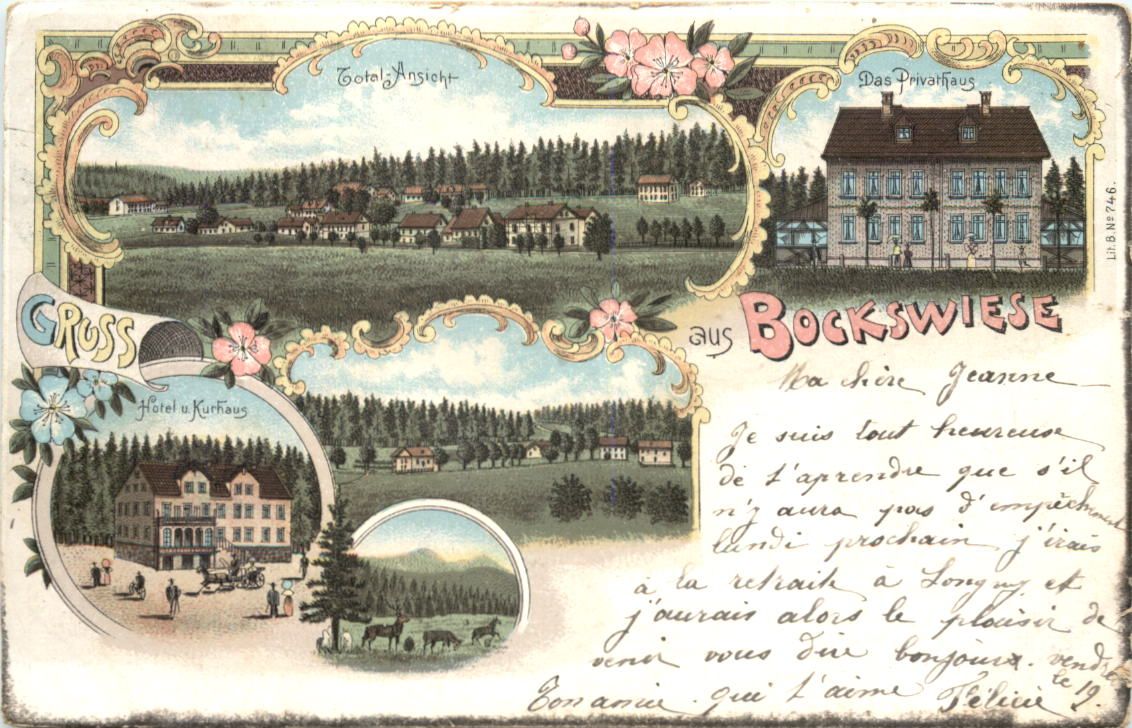 Total-Ansicht
Das Privathaus
Lit. B. No 746.
GRUSS
aus BOCKSWIESE
Hotel u. Kurhaus
Ma chère Jeanne
Je suis tout heureuse
de t'aprendre que s'il
n'y aura pas d'empêchement
lundi prochain j'irais
à la retraite à Longwy et
j'aurais alors le plaisir de
venir vous dire bonjour. vendre
le 19.
Ton amie qui t'aime Féline